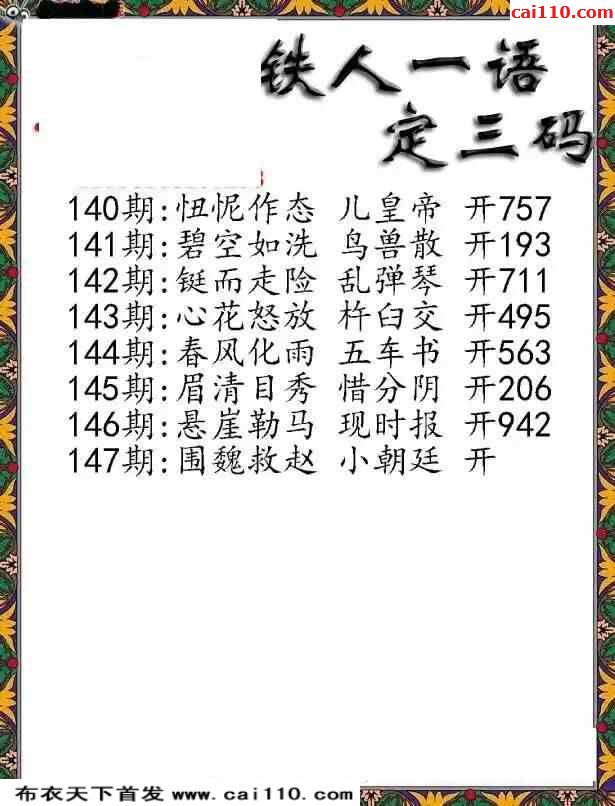 cai110.com
铁人一语
定三码
140期:忸怩作态 儿皇帝 开757
141期:碧空如洗 鸟兽散 开193
142期:铤而走险 乱弹琴 开711
143期:心花怒放 杵臼交 开495
144期:春风化雨 五车书 开563
145期:眉清目秀 惜分阴 开206
146期:悬崖勒马 现时报 开942
147期:围魏救赵 小朝廷 开
布衣天下首发 www.cai110.com